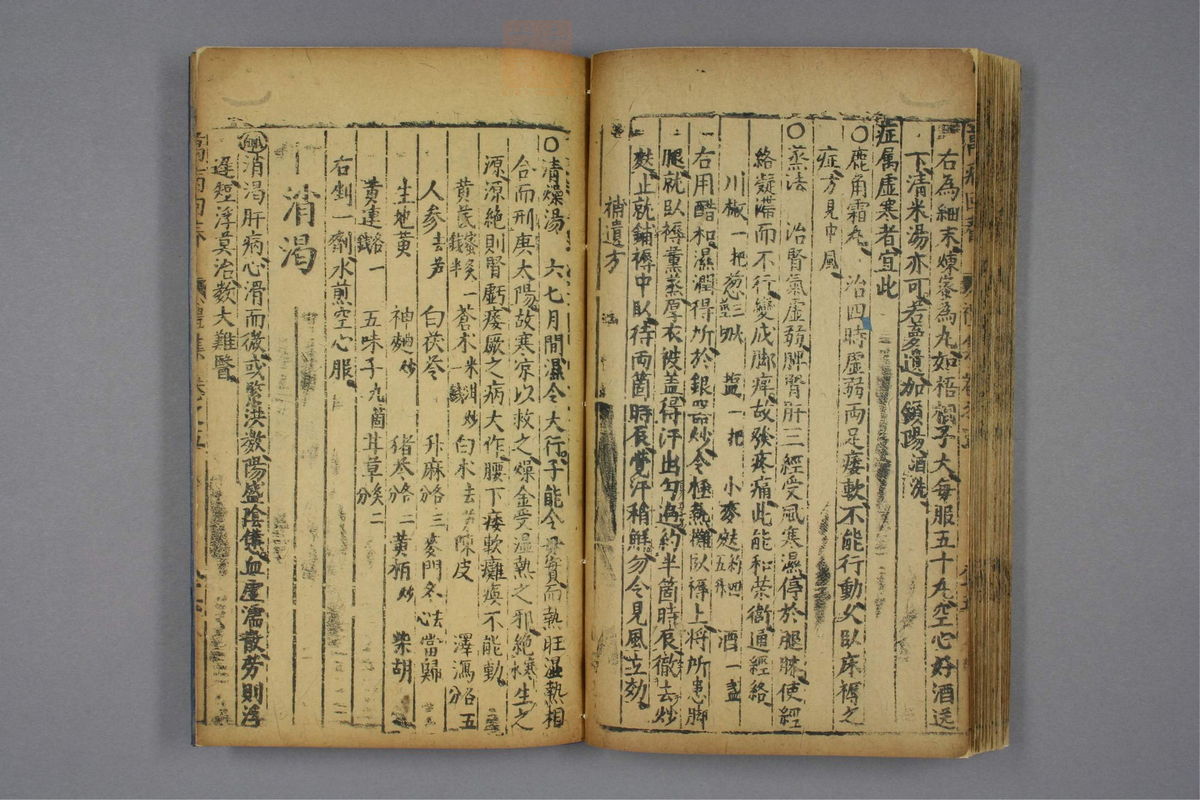 右為細末煉蜜為丸如梧桐子大每服五十丸空心好酒送
下清米湯亦可若夢遺加鎖陽酒洗
症属虚寒者宜此
○鹿角霜丸 治四時虚弱両足痿軟不能行動久臥床褥之
症方見中風
○蒸法 治腎氣虚弱脾腎肝三經受風寒濕停於腿膝使經
絡凝滯而不行變成脚痺故発疼痛此能和荣衛通經絡
川椒一把 葱三 塩一把 小麥麩約四五升 酒一盞
右用醋和濕潤得所於銀器炒令極熱攤臥褥上将所患脚
腿就臥褥薰蒸厚衣被盖得汗出勻遍約半箇時辰徹去炒
麩止就鋪褥中臥待両箇時辰覺汗稍鮮勿令見風立効
補遺方
○清燥湯 六七月間濕令大行子能令母實而熱旺湿熱相
合而刑庚大陽故寒凉以救之燥金受湿熱之邪絶寒生之
源源絶則腎虧痿厥之病大作腰下痿軟癱瘓不能動
黄芪蜜炙一錢半 蒼术米泔炒一錢 白术去芦 陳皮 澤瀉各五分
人参去芦 白茯苓 升麻各三分 麥門冬去心 當歸
生地黄 神麯炒 猪苓各二分 黄柄炒 柴胡
黄連各一錢 五味子九箇 甘草炙二分
右剉一劑水煎空心服
消渴
脉 消渴肝病心滑而微或緊洪数陽盛陰憊血虚濡散劳則浮
遲短浮莫治数大難醫